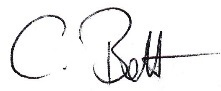 C. Bett